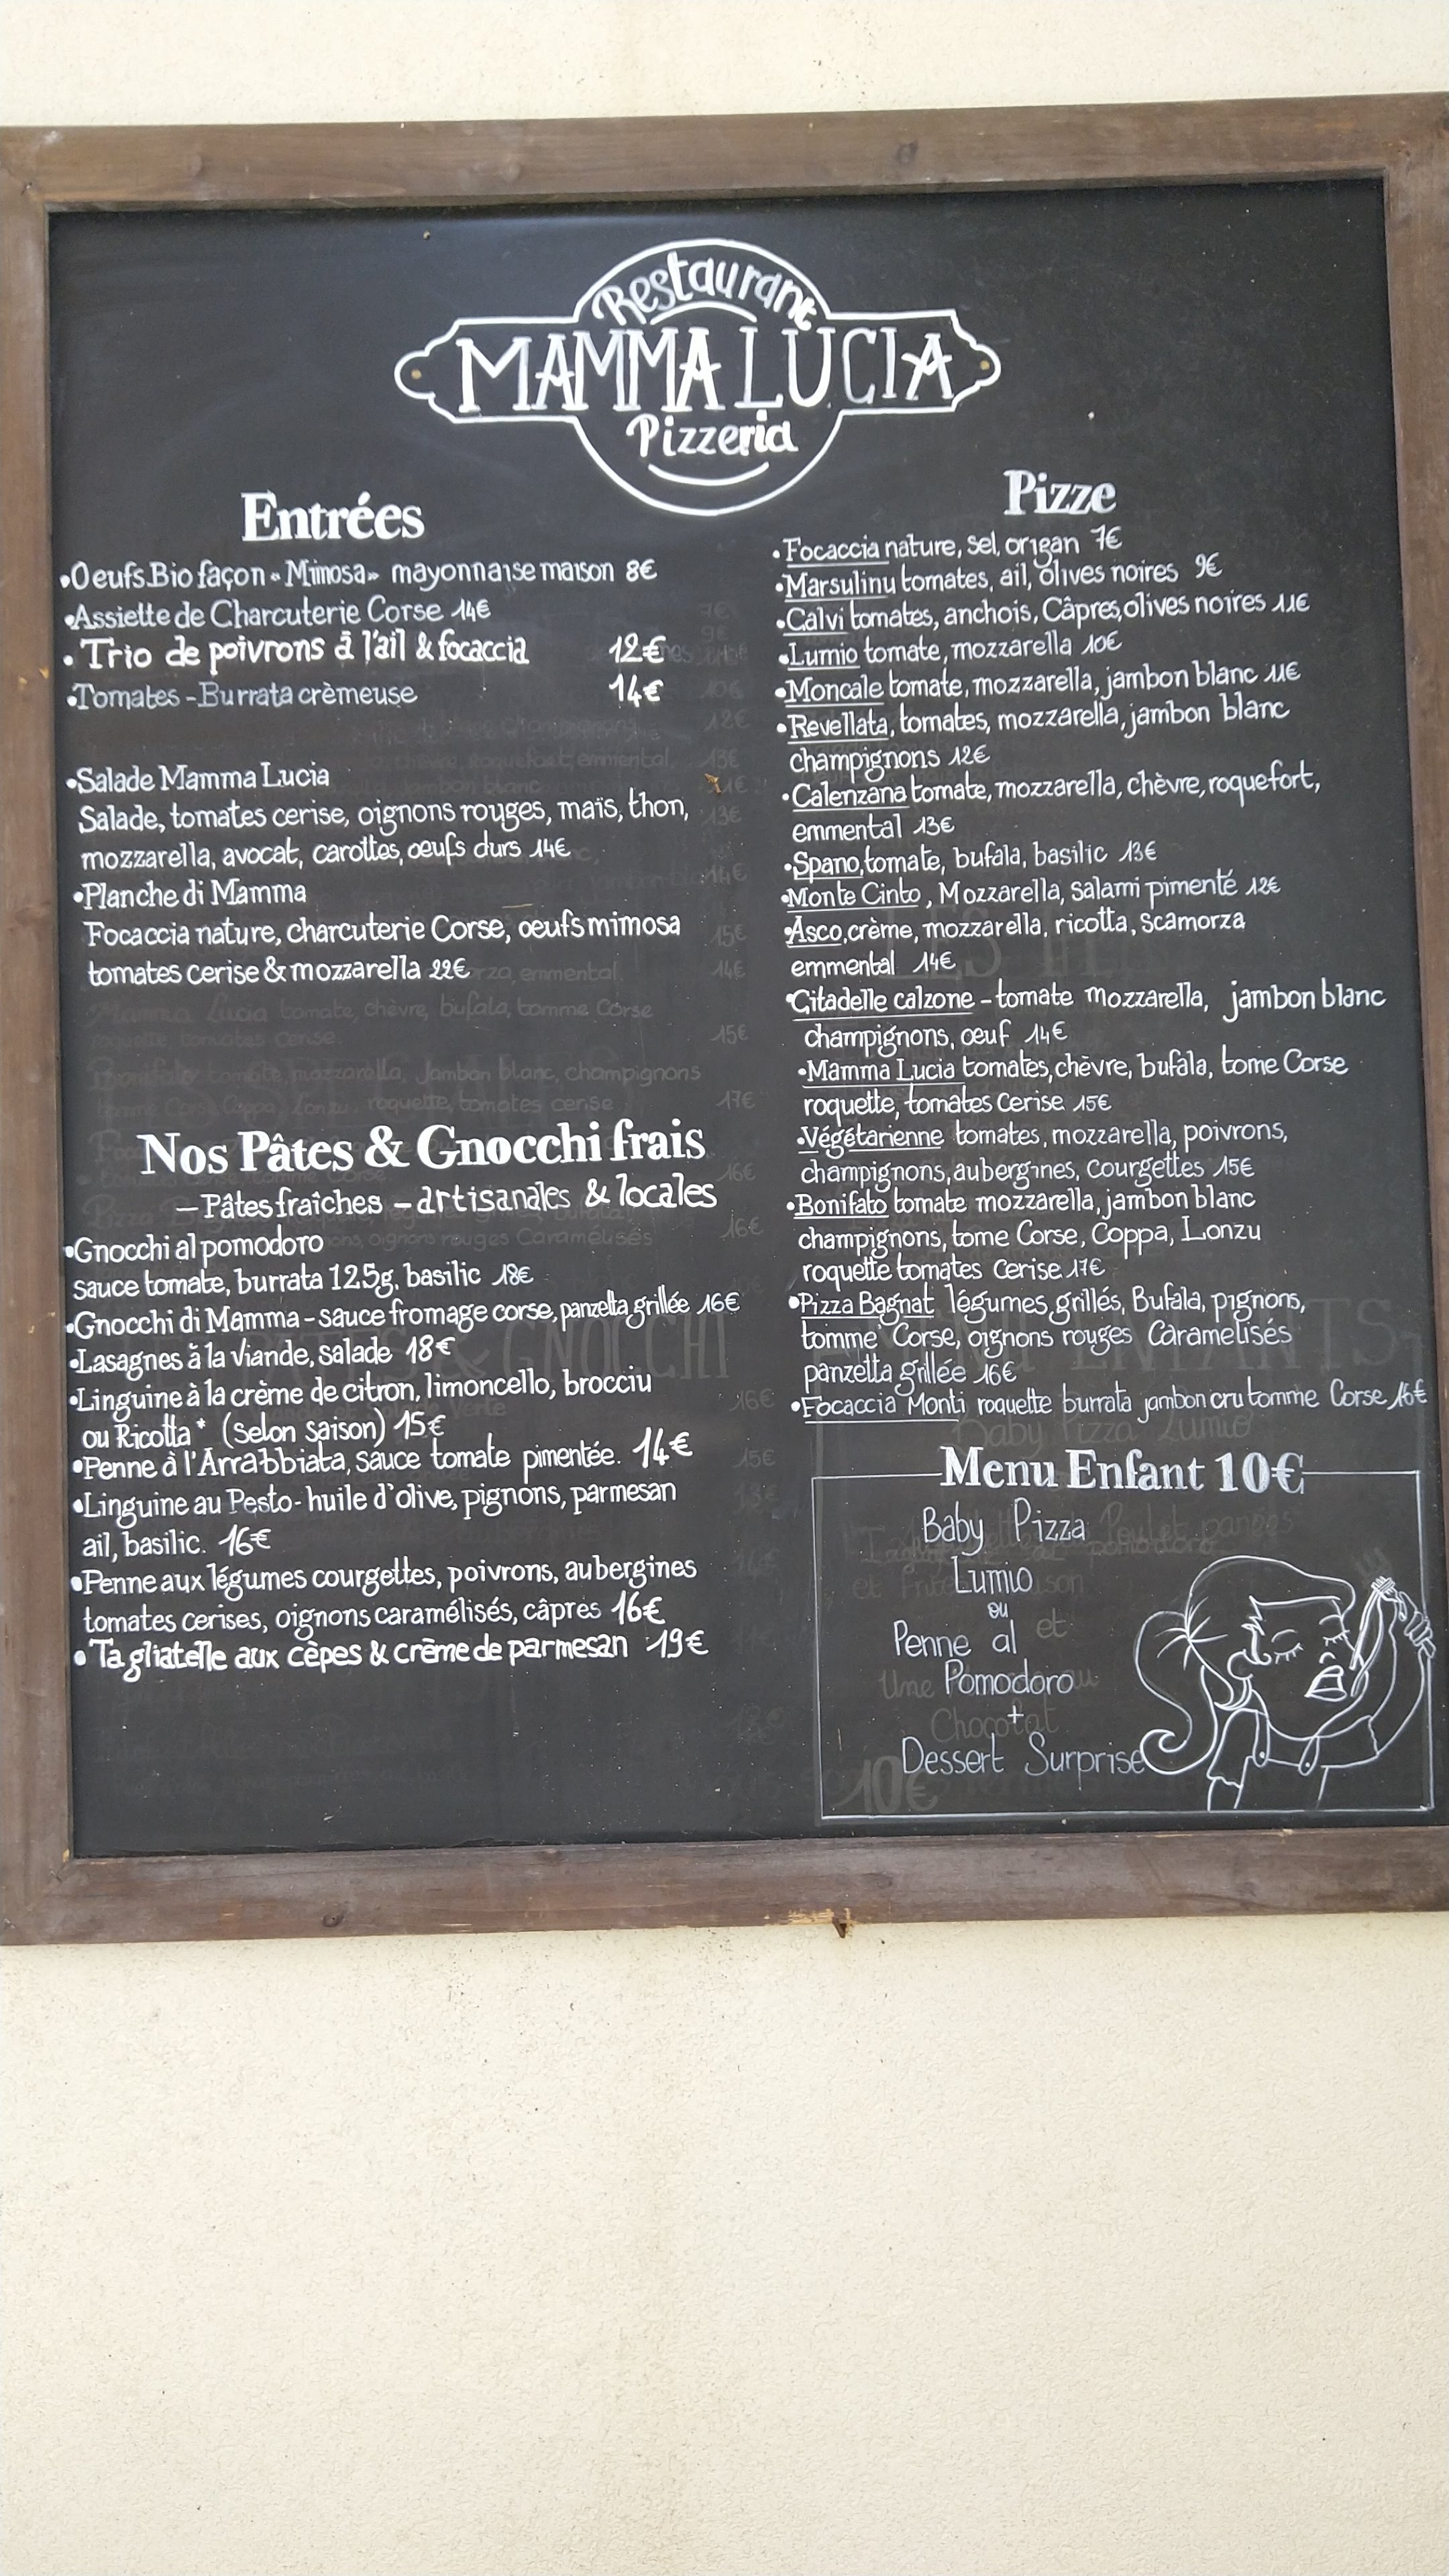 Restaurant
MAMMA LUCIA
Pizzeria
Entrées
•Oeufs Bio façon «Mimosa» mayonnaise maison 8€
•Assiette de Charcuterie Corse 14€
• Trio de poivrons à l'ail & focaccia 12€
•Tomates - Burrata crèmeuse 14€
•Salade Mamma Lucia
Salade, tomates cerise, oignons rouges, maïs, thon,
mozzarella, avocat, carottes, oeufs durs 14€
•Planche di Mamma
Focaccia nature, charcuterie Corse, oeufs mimosa
tomates cerise & mozzarella 22€
Nos Pâtes & Gnocchi frais
- Pâtes fraîches - artisanales & locales
•Gnocchi al pomodoro
sauce tomate, burrata 125g, basilic 18€
•Gnocchi di Mamma - sauce fromage corse, panzetta grillée 16€
•Lasagnes à la viande, salade 18€
•Linguine à la crème de citron, limoncello, brocciu
ou Ricotta* (Selon saison) 15€
•Penne à l'Arrabbiata, sauce tomate pimentée. 14€
•Linguine au Pesto - huile d'olive, pignons, parmesan
ail, basilic. 16€
•Penne aux légumes courgettes, poivrons, aubergines
tomates cerises, oignons caramélisés, câpres 16€
• Tagliatelle aux cèpes & crème de parmesan 19€
Pizze
• Focaccia nature, sel, origan 7€
•Marsulinu tomates, ail, olives noires 9€
•Calvi tomates, anchois, Câpres, olives noires 11€
•Lumio tomate, mozzarella 10€
•Moncale tomate, mozzarella, jambon blanc 11€
•Revellata, tomates, mozzarella, jambon blanc
champignons 12€
•Calenzana tomate, mozzarella, chèvre, roquefort,
emmental 13€
•Spano, tomate, bufala, basilic 13€
•Monte Cinto, Mozzarella, salami pimenté 12€
•Asco, crème, mozzarella, ricotta, Scamorza
emmental 14€
•Citadelle calzone - tomate mozzarella, jambon blanc
champignons, oeuf 14€
•Mamma Lucia tomates, chèvre, bufala, tome Corse
roquette, tomates Cerise 15€
•Végétarienne tomates, mozzarella, poivrons,
champignons, aubergines, courgettes 15€
•Bonifato tomate mozzarella, jambon blanc
champignons, tome Corse, Coppa, Lonzu
roquette tomates Cerise 17€
•Pizza Bagnat légumes grillés, Bufala, pignons,
tomme Corse, oignons rouges Caramelisés
panzetta grillée 16€
•Focaccia Monti roquette burrata jambon cru tomme Corse 16€
Menu Enfant 10€
Baby Pizza
Lumio
ou
Penne al
Pomodoro
+
Dessert Surprise